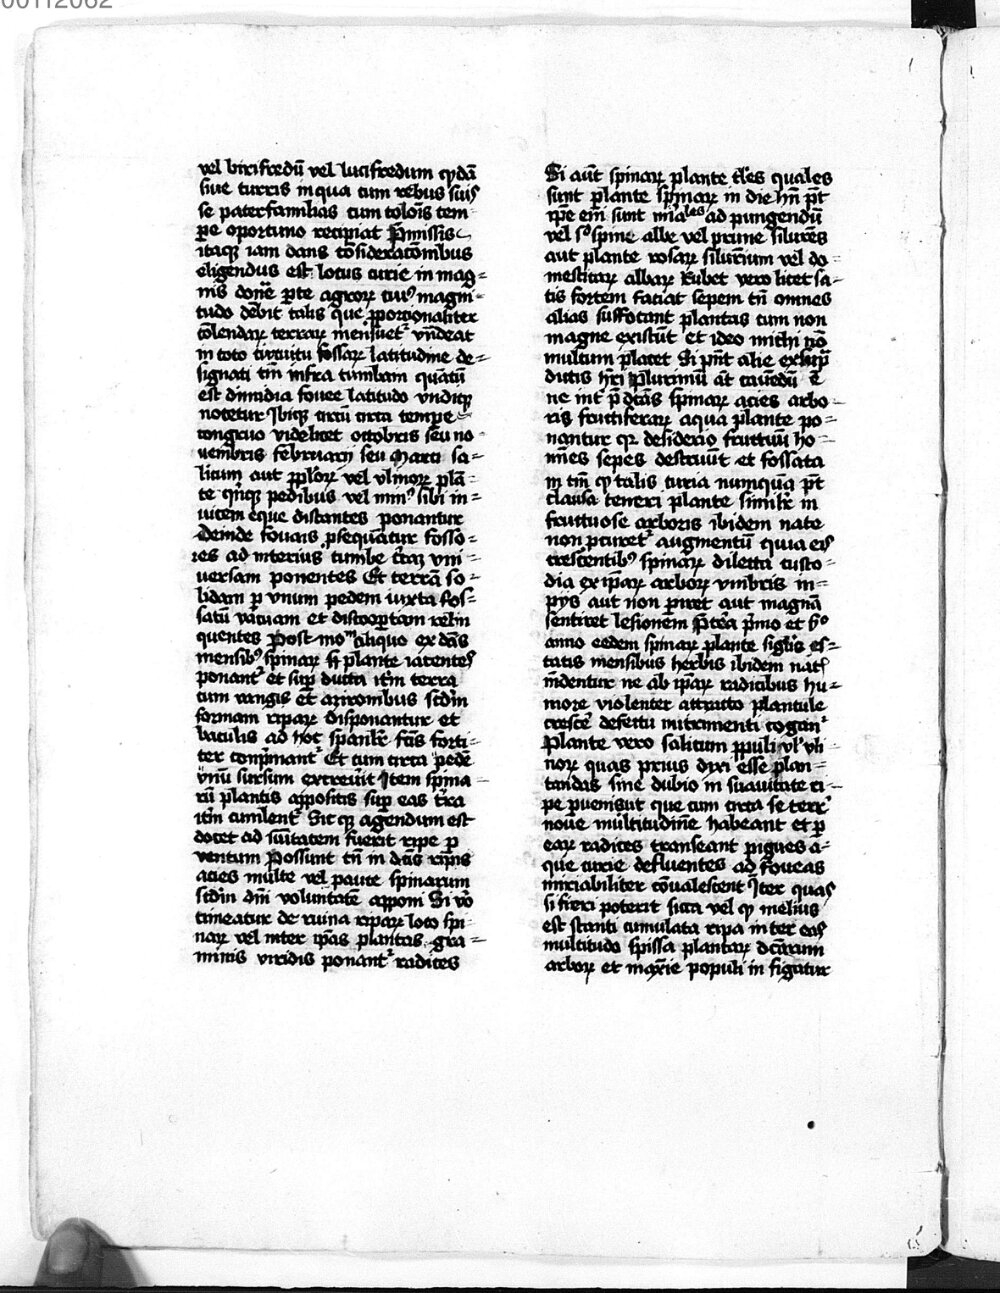 00112062
vel birifredū vel lucifredum qdā
siue turris in qua cum rebus suis
se paterfamilias cum colonis tem
pe oportuno recipiat Pmissis
itaqꝫ iam dans cōsideracōnibus
eligendus est locus curie in mag=
nis done pte agroꝝ cuiꝰ magni=
tudo debet talis que pporcionaliter
colendaꝝ terraꝝ mensuet vndeat
in toto circuitu fossaꝝ latitudine de=
signati tm̄ infra tumbam quātū
est dimidia fouee latitudo vndiqꝫ
notetur Ibiqꝫ circū circa tempe
congruo videlicet octobris seu no
uembris februarij seu Marcij sa=
licum aut pploꝝ vel vlmoꝝ plā=
te qnqꝫ pedibus vel minꝰ sibi in=
uicem eque distantes ponantur
deinde foueis psequātur fosso=
res ad interius tumbe t̄ra vni=
uersam ponentes Et terrā so=
lidam p vnum pedem iuxta fos=
satū vacuam et discoptam relin
quentes Post moᵐ aliquo ex dc̄is
mensibꝰ spinaꝝ plante iacentes
ponant et sup ducta itm terra
cum vangis et azironibus scdm
formam ripaꝝ disponantur et
baculis ad hoc spanlr fcis forti=
ter conpmant Et cum circa pede
vnū sursum excreuit Item spina=
rū plantis appositis sup eas t̄ra
itm cumlent Sicqꝫ agendum est
donec ad sūitatem fuerit ripe p
ventum Possunt tn̄ in dc̄is ripis
acies multe vel pauce spinarum
scdm dn̄i voluntatē apponi Si vo
timeatur de ruina ripaꝝ loco spi=
naꝝ vel inter ipas plantas gra=
minis viridis ponant radices
Si aūt spinaꝝ plante tles quales
sunt plante spinaꝝ in die hn̄t pt
ipe em̄ sunt miales ad pungendū
vel sꝰ spine albe vel prune silures
aut plante rosaꝝ siluriium vel do=
mesticaꝝ albaꝝ Rubet vero licet sa=
tis fortem faciat sepem tn̄ omnes
alias suffocant plantas cum non
magne existūt et ideo michi nō
multum placet Si pnt alie
dictis hr̄i Plurimū at cauedū ē
ne int pdc̄as spinaꝝ acies arbo=
ris fructiferaꝝ aqua plante po=
nantur qꝛ desiderio fructuū ho=
mines sepes destruūt et fossata
in tm̄ qꝫ talis curia numquā pt
clausa teneri plante similr̄ in
fructuose arboris ibidem nate
non pcuret augmentū quia eis
crescentibꝰ spinaꝝ dilecta custo=
dia ex ipaꝝ arboꝝ vmbris in=
pijs aut non piret aut magnā
sentiret lesionem Pterea pmo et sꝰ
anno eedem spinaꝝ plante siglis es=
tatis mensibus herbis ibidem nat
mundentur ne ab ipaꝝ radicibus hu=
more violenter attracto plantule
cresce defectu nutrimenti cogant
Plante vero salicum ppuli vl vl
noꝝ quas prius dixi esse plan=
tandas sine dubio in suauitate ri=
pe puenisut que cum circa se terr
noue multitudine habeant et p
eaꝝ radices transeant pigues a=
que curie defluentes ad foueas
miriabiliter cōualescent Iter quas
si fieri poterit sicca vel qꝫ melius
est stanti cumulata ripa inter eas
multitudo spissa plantaꝝ dcarum
arboꝝ et maxie populi in figatur